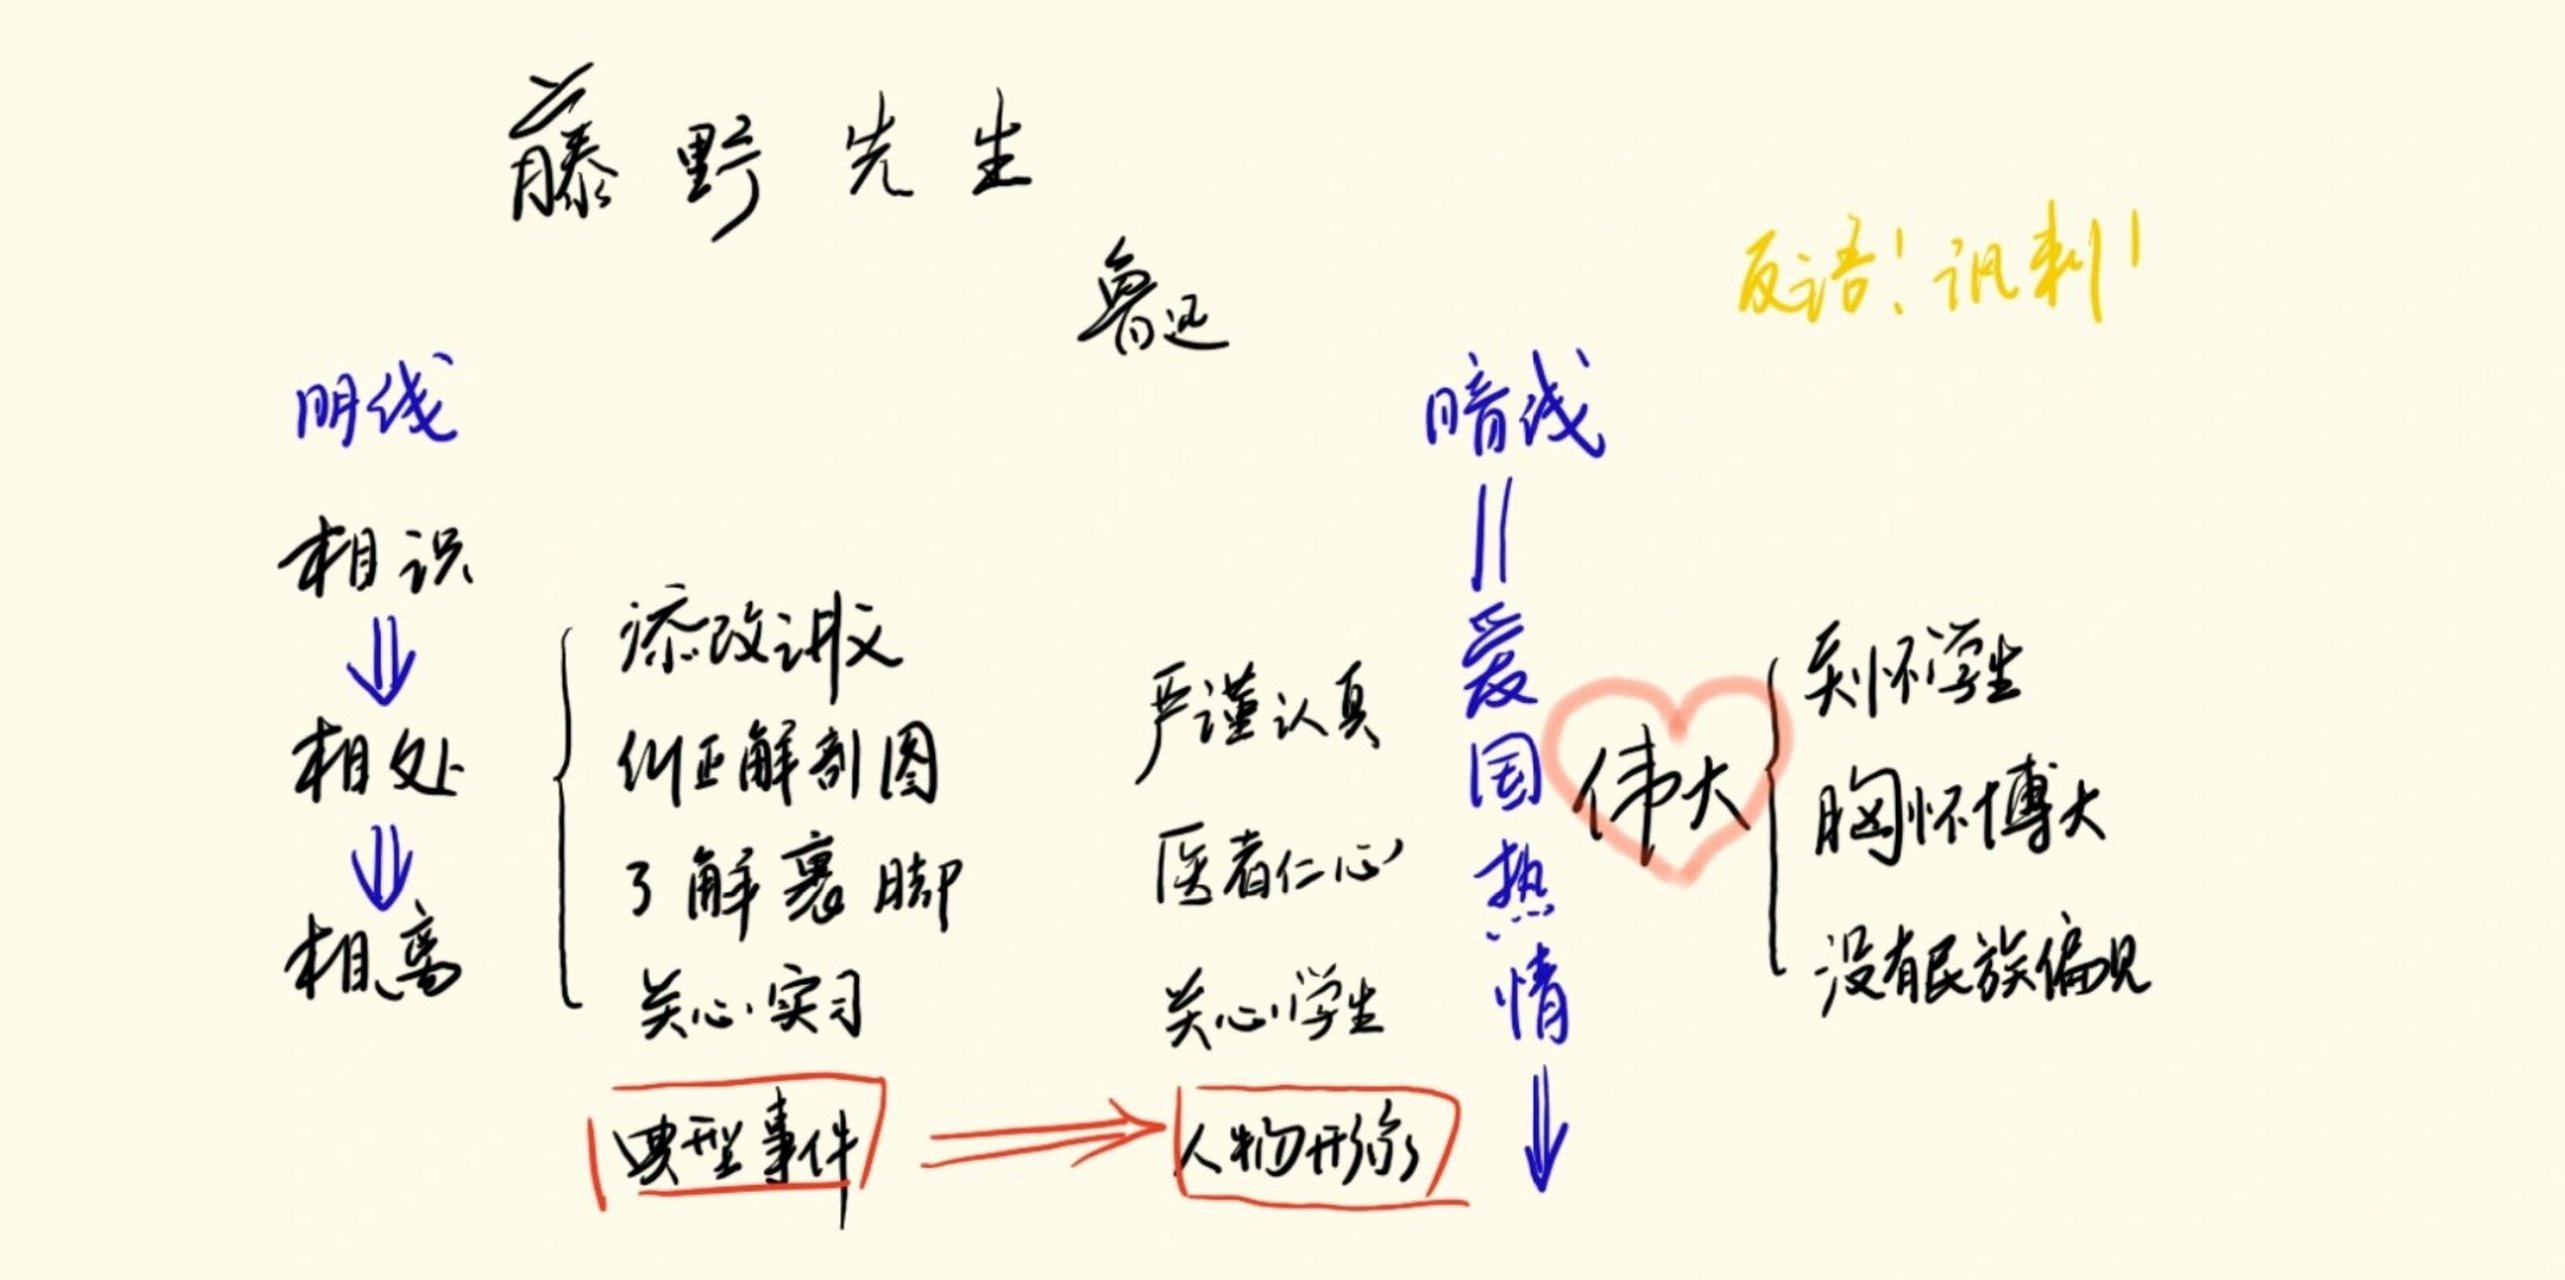 藤野先生
鲁迅
反语！讽刺！
明线
相识
相处
相离
添改讲义
纠正解剖图
了解裹脚
关心实习
典型事件
严谨认真
医者仁心
关心学生
人物形象
暗线
爱国热情
伟大
关怀学生
胸怀博大
没有民族偏见